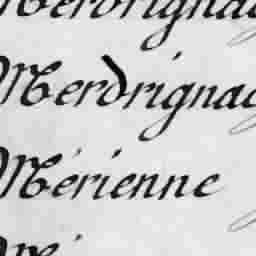 Merdrignac
Merdrignac
Mérienne